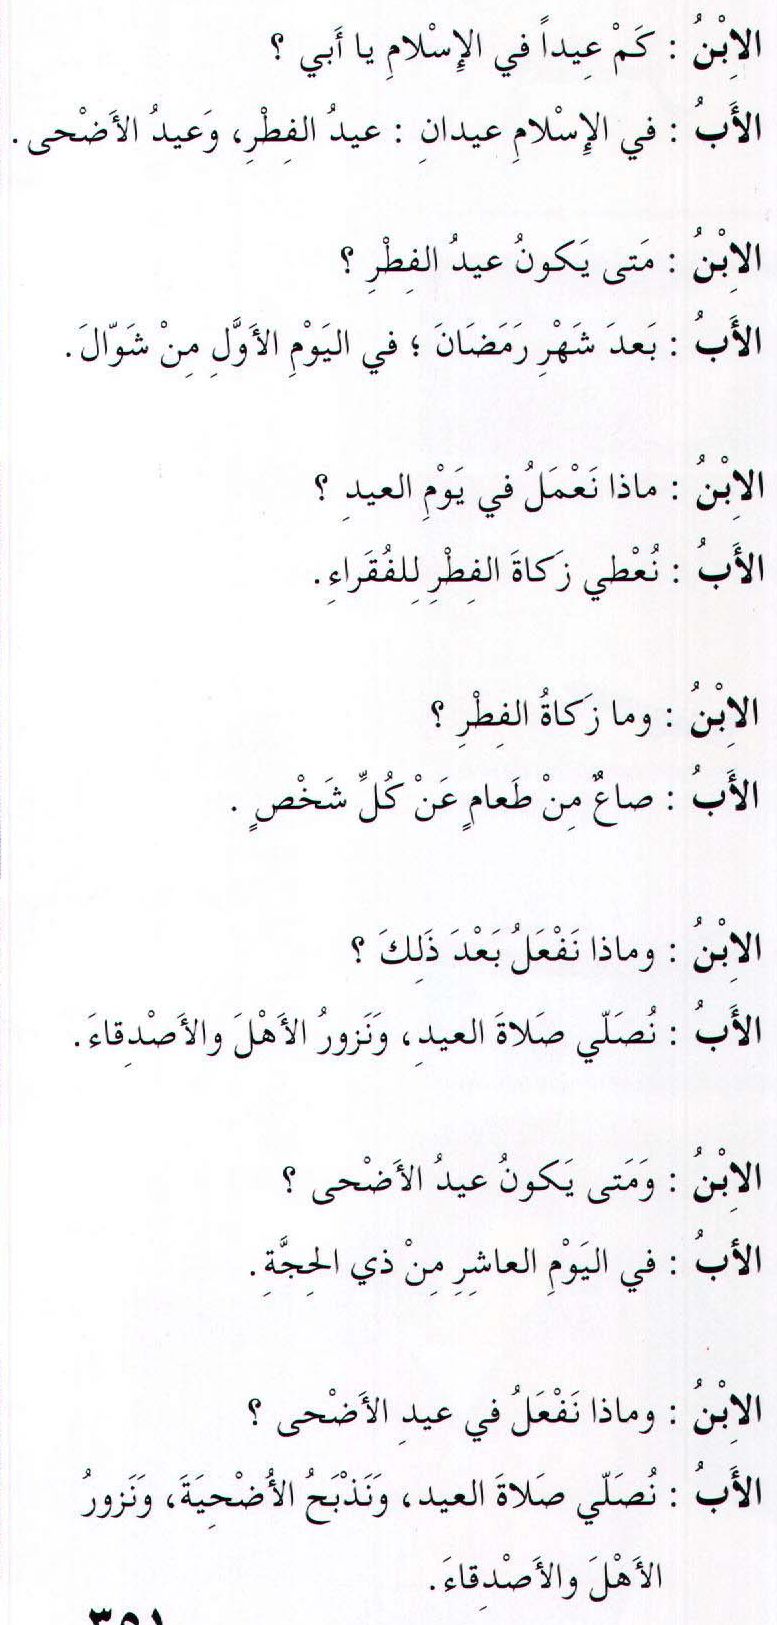 الاِبْنُ : كَمْ عِيداً في الإِسْلامِ يا أَبي ؟
الأَبُ : في الإِسْلامِ عيدانِ : عيدُ الفِطْرِ، وَعيدُ الأَضْحى.
الاِبْنُ : مَتى يَكونُ عيدُ الفِطْرِ ؟
الأَبُ : بَعدَ شَهْرِ رَمَضَانَ ؛ في اليَوْمِ الأَوَّلِ مِنْ شَوّالَ.
الاِبْنُ : ماذا نَعْمَلُ في يَوْمِ العيدِ ؟
الأَبُ : نُعْطي زَكاةَ الفِطْرِ لِلفُقَراءِ.
الاِبْنُ : وما زَكاةُ الفِطْرِ ؟
الأَبُ : صاعٌ مِنْ طَعامٍ عَنْ كُلِّ شَخْصٍ .
الاِبْنُ : وماذا نَفْعَلُ بَعْدَ ذَلِكَ ؟
الأَبُ : نُصَلّي صَلاةَ العيدِ، وَنَزورُ الأَهْلَ والأَصْدِقاءَ.
الاِبْنُ : وَمَتى يَكونُ عيدُ الأَضْحى ؟
الأبُ : في اليَوْمِ العاشِرِ مِنْ ذي الحِجَّةِ.
الاِبْنُ : وماذا نَفْعَلُ في عيدِ الأَضْحى ؟
الأَبُ : نُصَلّي صَلاةَ العيد، وَنَذْبَحُ الأُضْحِيَةَ، وَنَزورُ
الأَهْلَ والأَصْدِقاءَ.